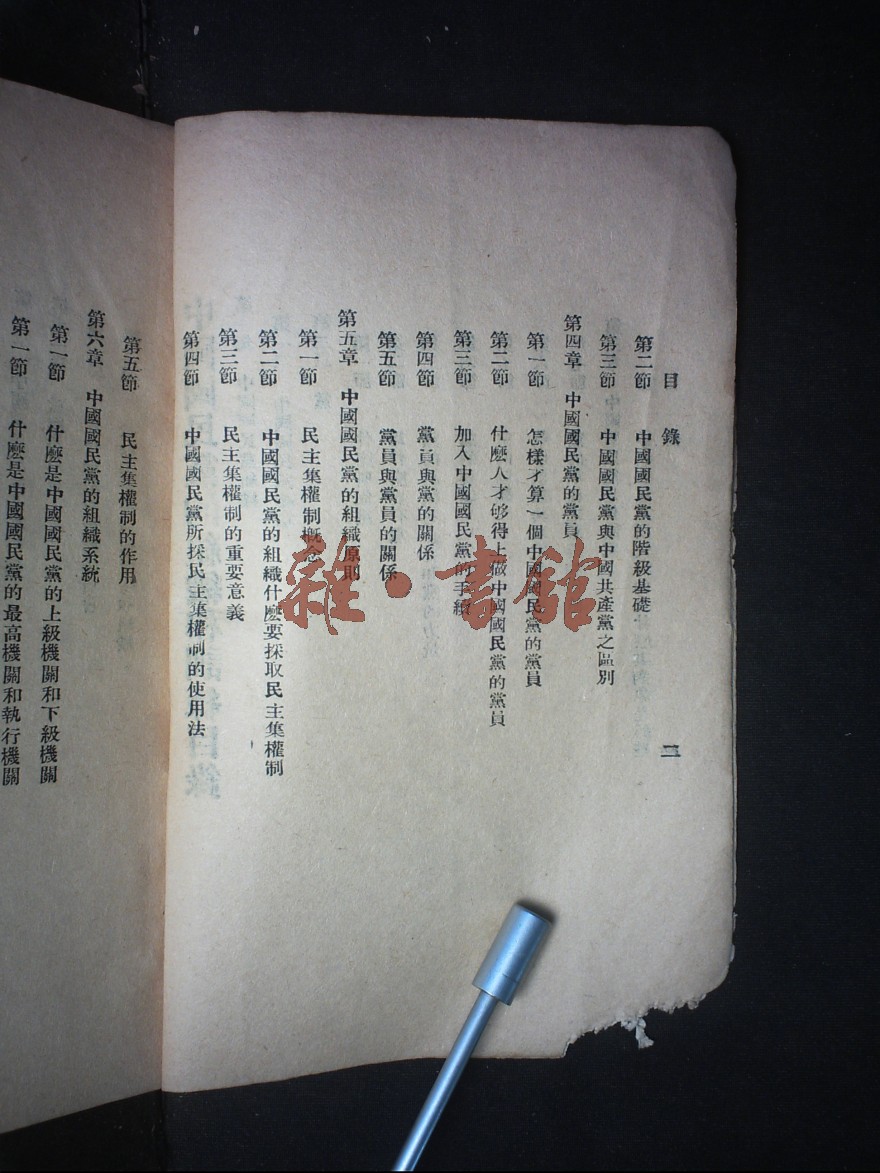 目錄 二
第二節 中國國民黨的階級基礎
第三節 中國國民黨與中國共產黨之區別
第四章 中國國民黨的黨員
第一節 怎樣才算一個中國國民黨的黨員
第二節 什麽人才够得上做中國國民黨的黨員
第三節 加入中國國民黨的手續
第四節 黨員與黨的關係
第五節 黨員與黨員的關係
第五章 中國國民黨的組織原則
第一節 民主集權制概念
第二節 中國國民黨的組織什麽要採取民主集權制
第三節 民主集權制的重要意義
第四節 中國國民黨所採民主集權制的使用法
第五節 民主集權制的作用
第六章 中國國民黨的組織系統
第一節 什麽是中國國民黨的上級機關和下級機關
第一節 什麽是中國國民黨的最高機關和執行機關
雜·書館